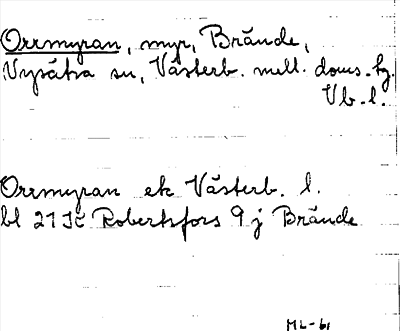 Orrmyran, myr, Brände,
Nysätra sn, Västerb. mell. doms.-hg.
Vb. l.
Orrmyran ek Västerb. l.
bl 21 K Robertsfors 9 j Brände
ML-61